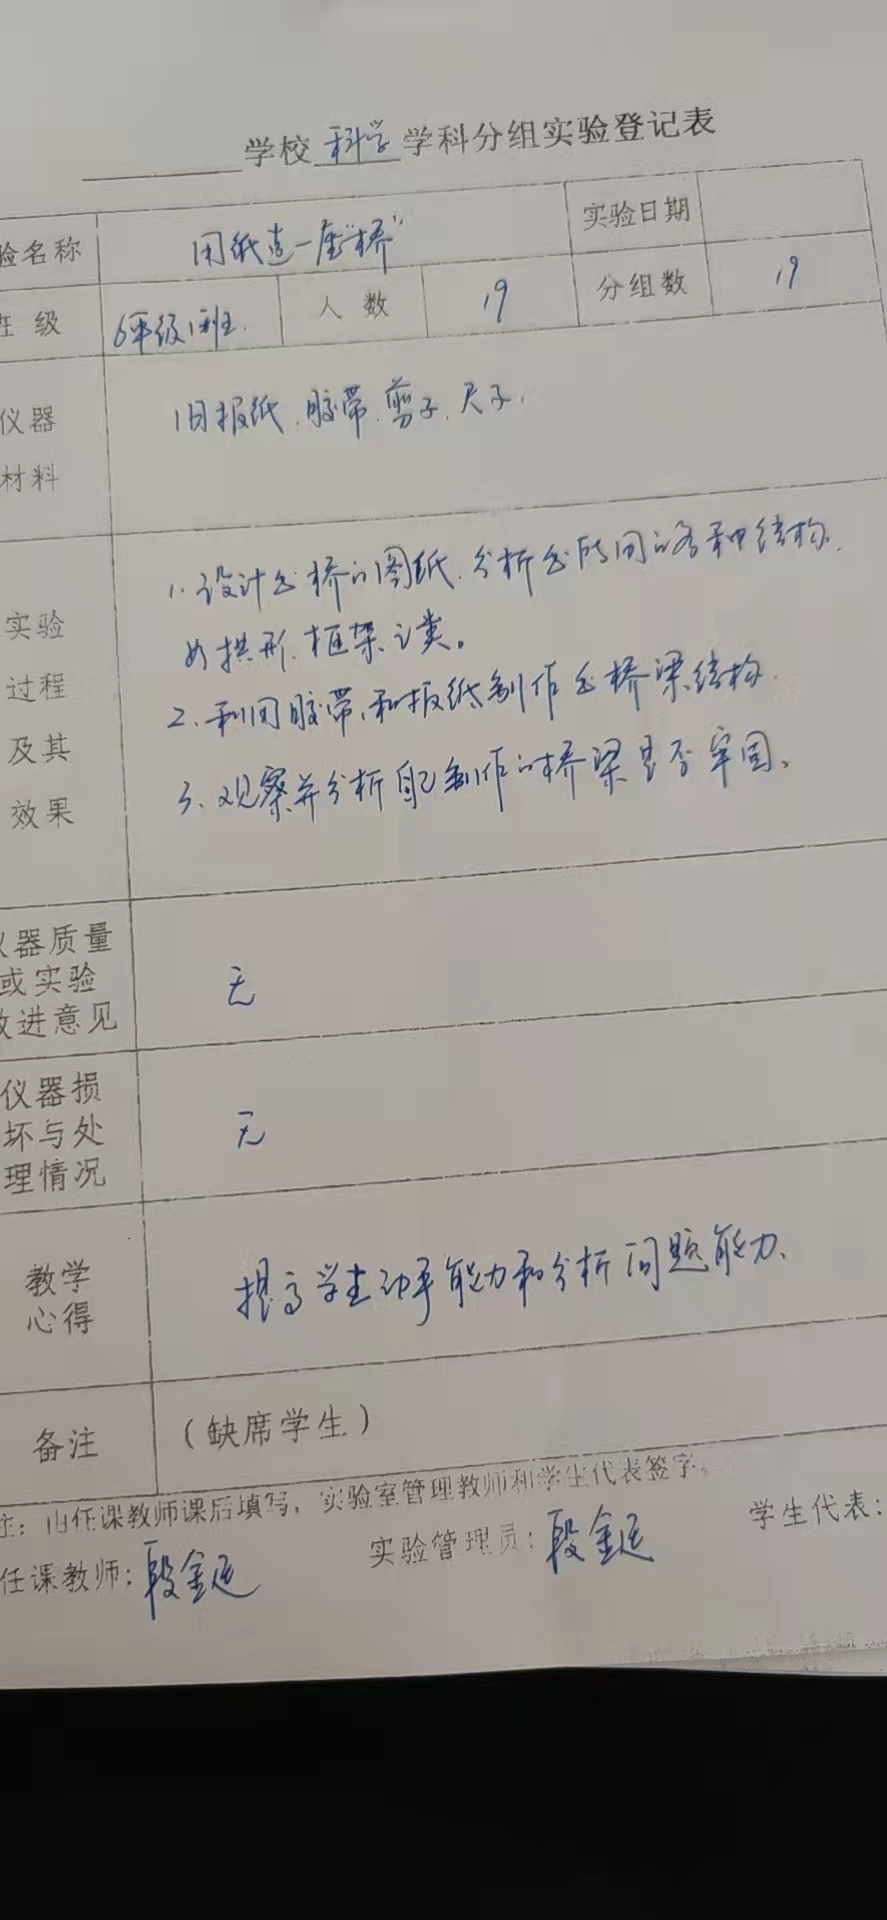 学校 科学 学科分组实验登记表
验名称 用纸造一座“桥” 实验日期
班级 6年级1班. 人数 19 分组数 19
仪器
材料
旧报纸、胶带、剪子、尺子.
实验
过程
及其
效果
1. 设计出桥的图纸、分析出所用的各种结构.
如拱形、框架之类。
2、利用胶带、和报纸制作出桥梁结构.
3、观察并分析自己制作的桥梁是否牢固。
仪器质量
或实验
改进意见
无
仪器损
坏与处
理情况
无
教学
心得
提高学生动手能力和分析问题能力、
备注 （缺席学生）
注：由任课教师课后填写，实验室管理教师和学生代表签字。
任课教师: 段金廷 实验管理员: 段金廷 学生代表: